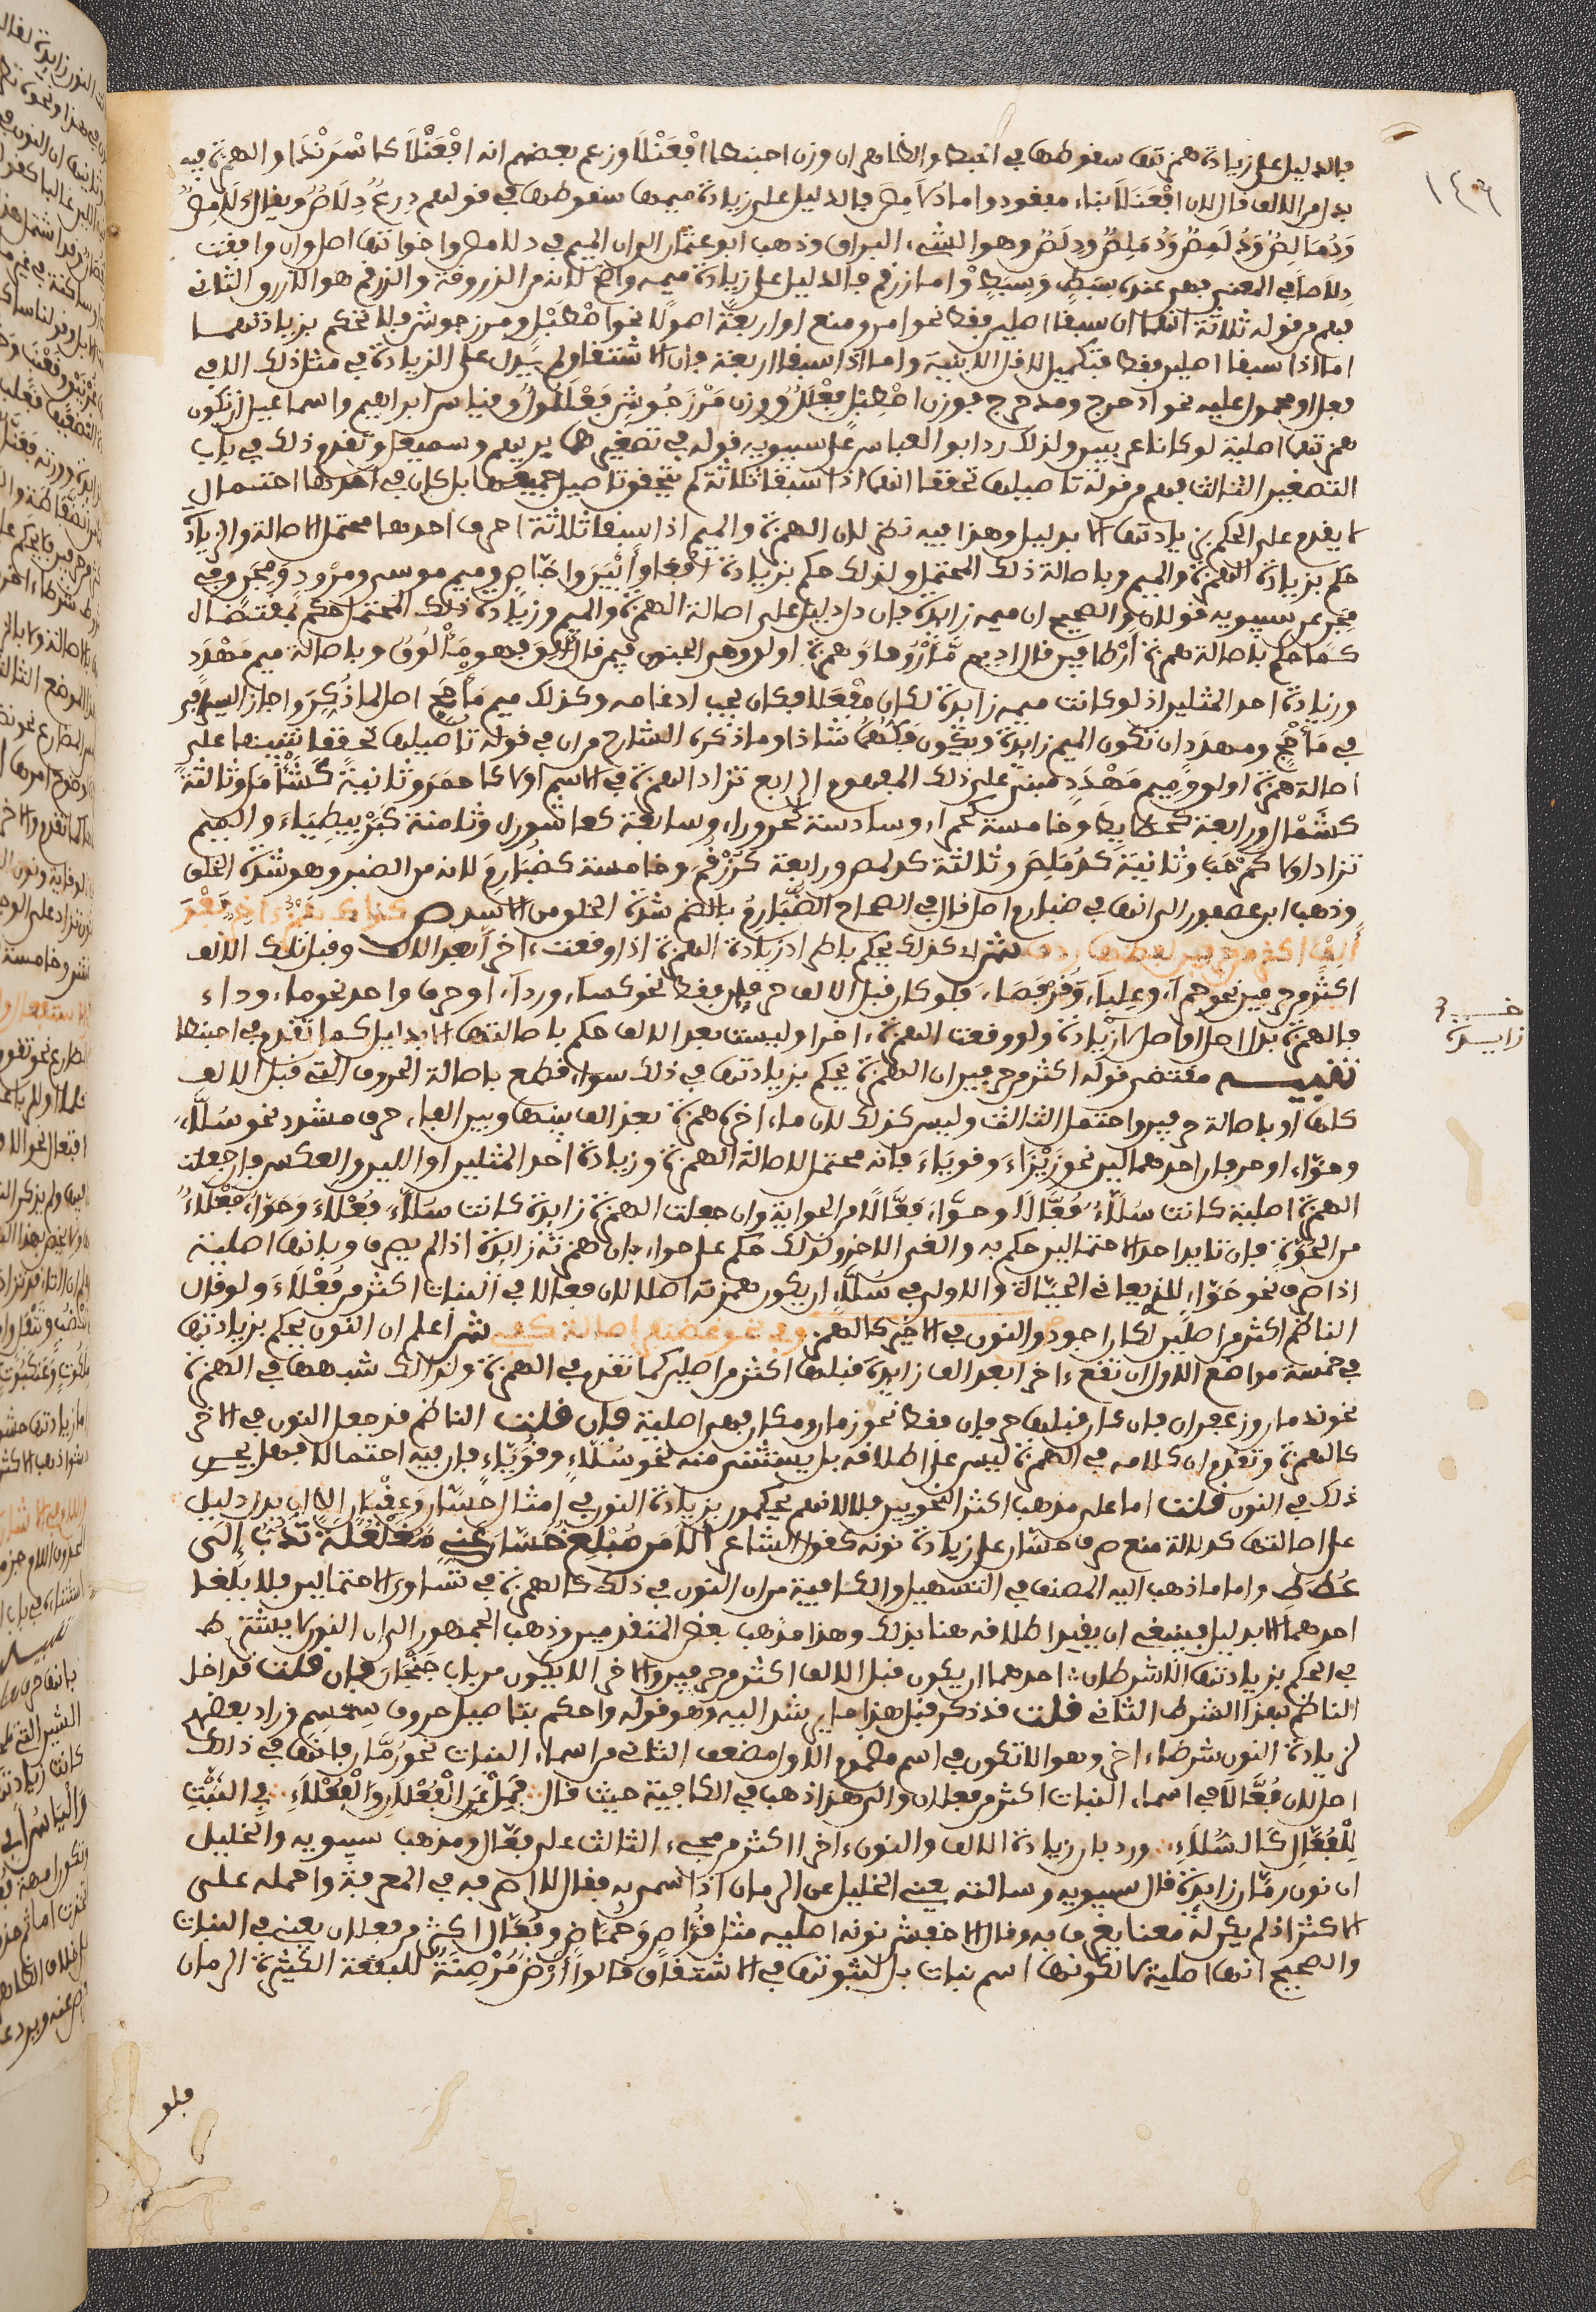 فالدليل على زيادة همزتها سقوطها في الحبط والظاهر ان وزن احبنطا افعنلا وزعم بعضهم انه افعنلأ كاسرندا والهمزة فيه
بدل من الالف قال لان افعنلأ بناء مفقود واما دلامص فالدليل على زيادة ميمها سقوطها في قولهم درع دلاص ويقال دلامص
ودمالص ودلمص ودملص ودلص وهو الشيء البراق وذهب ابو عثمان الى ان الميم في دلامص واخواتها اصل وان وافقت
دلاصا في المعنى فهي عنده كسبط وسبطر واما زرقم فالدليل على زيادة ميمه واضح لانه من الزرقة والزرقم هو الازرق الثاني
فهم من قوله ثلاثة انهما ان سبقا اصلين فقط نحو امر ومنع او اربعة اصول نحو اصطبل ومرزجوش فلا تحكم بزيادتهما
اما اذا سبقا اصلين فقط فتكميل لاقل الابنية واما اذا سبقا اربعة فان الاشتقاق لم يدل على الزيادة في مثل ذلك الا في
فعل او محمول عليه نحو ادحرج ومدحرج فوزن اصطبل فعلل ووزن مرزجوش فعللول وقياس ابراهيم واسماعيل ان تكون
همزتها اصلية لو كانا عربيين ولذلك رد ابو العباس على سيبويه قوله في تصغيرهما بريهيم وسميعيل وتقدم ذلك في باب
التصغير الثالث فهم من قوله تاصيلها تحققا انهما اذا سبقا ثلاثة لم يتحقق تاصيل جميعها بل كان في احدها احتمال
لا يقدم على الحكم بزيادتها الا بدليل وهذا فيه نظر لان الهمزة والميم اذا سبقا ثلاثة احرف احدها محتمل الاصالة والزيادة
حكم بزيادة الهمزة والميم وباصالة ذلك المحتمل ولذلك حكم بزيادة افعا وابين واجاص وميم موسى ومزود ومجن وفي
مجن عن سيبويه قولان والصحيح ان ميمه زائدة فان دل دليل على اصالة الهمزة والميم وزيادة ذلك المحتمل حكم بمقتضاه
كما حكم باصالة همزة ارطا فيمن قال اديم مأروط وهمزة اولق وهو الجنون فيمن قال الق فهو مألوق وباصالة ميم مهدد
وزيادة احد المثلين اذ لو كانت ميمه زائدة لكان مفعلا فكان يجب ادغامه وكذلك ميم مأجج اصل لما ذكر واجاز السيرافي
في مأجج ومهدد ان تكون الميم زائدة ويكون فكهما شاذا وما ذكره الشارح من ان في قوله تاصيلها تحققا تنبيها على
اصالة همزة اولق وميم مهدد مبني على ذلك المفهوم الرابع تزاد الهمزة في الاسم اولا كاحمر وثانية كشأمل وثالثة
كشمأل ورابعة كحطايط وخامسة كحمراء وسادسة كحروراء وسابعة كعاشوراء وثامنة كبربيطياء والميم
تزاد اولا كمرحب وثانية كدملص وثالثة كدلمص ورابعة كزرقم وخامسة كضبارم لانه من الضبر وهو شدة الخلق
وذهب ابن عصفور الى انها في ضبارم اصل قال في الصحاح الضبارم بالضم شدة الخلق من الاسد ص كذاك همز اخر بعد
الف اكثر من حرفين لفظها ردف
ش اي كذلك يحكم باطراد زيادة الهمزة اذا وقعت اخرا بعد الالف وقبل تلك الالف
اكثر من حرفين نحو حمراء وعلباء وقرفصاء فلو كان قبل الالف حرفان فقط نحو كساء ورداء او حرف واحد نحو ماء وداء
فالهمزة بدل اصل او اصل لا زيادة ولو وقعت الهمزة اخرا وليست بعد الالف حكم باصالتها الا بدليل كما تقدم في احبنطا
تنبيه مقتضى قوله اكثر من حرفين ان الهمزة يحكم بزيادتها في ذلك سواء قطع باصالة الحروف التي قبل الالف
كلها او باصالة حرفين واحتمل الثالث وليس كذلك لان ما اخره همزة بعد الف بينها وبين الفاء حرف مشدد نحو سلاء
وحواء او حرفان احدهما لين نحو زيزاء وقوباء فانه محتمل لاصالة الهمزة وزيادة احد المثلين او اللين والعكس فان جعلت
الهمزة اصلية كانت سلاء فعالا وحواء فعالا من الحواية وان جعلت الهمزة زائدة كانت سلاء فعلاء وحواء فعلاء
من الحوة فان تايد احد الاحتمالين حكم به والغي الاخر ولذلك حكم على حواء بان همزته زائدة اذا لم يصرف وبانها اصلية
اذا صرف نحو حواء للذي يعاني الحيات والاولى في سلاء ان يكون همزته اصلا لان فعالا في النبات اكثر من فعلاء ولو قال
الناظم اكثر من اصلين لكان اجود والنون في الاخر كالهمز وفي نحو غضنفر اصالة كفي ش اعلم ان النون يحكم بزيادتها
في خمسة مواضع الاول ان تقع اخرا بعد الف زائدة قبلها اكثر من اصلين كما تقدم في الهمزة ولذلك شبهها في الهمزة
نحو ندمان وزعفران فان كان قبلها حرفان فقط نحو زمان ومكان فهي اصلية فان قلت الناظم قد جعل النون في الاخر
كالهمزة وتقدم ان كلامه في الهمزة ليس على اطلاقه بل يستثنى منه نحو سلاء وقوباء فان فيه احتمالا فهل يجي
ذلك في النون قلت اما على مذهب اكثر النحويين فلا لانهم يحكمون بزيادة النون في امثال حسان وعقيان الا ان يدل دليل
على اصالتها كدلالة منع صرف حسان على زيادة نونه كقول الشاعر الا من مبلغ حسان عني مغلغلة تدب الى
عكاظ واما ما ذهب اليه المصنف في التسهيل والكافية من ان النون في ذلك كالهمزة في تساوي الاحتمالين فلا يلغا
احدهما الا بدليل فينبغي ان يقيد اطلاقه هنا بذلك وهذا مذهب بعض المتقدمين وذهب الجمهور الى ان النون لا يشترط
في الحكم بزيادتها الا شرطان احدهما ان يكون قبل الالف اكثر من حرفين والاخر الا يكون من باب جنجان فان قلت قد اخل
الناظم بهذا الشرط الثاني قلت قد ذكر قبل هذا ما يرشد اليه وهو قوله واحكم بتاصيل حروف سمسم وزاد بعضهم
لزيادة النون شرطا اخر وهو الا تكون في اسم مضموم الاول مضعف الثاني من اسماء النبات نحو رمان فانها في ذلك
اصل لان فعالا في اسماء النبات اكثر من فعلان والى هذا ذهب في الكافية حيث قال فمل عن الفعلان والفعلاء في النبت
للفعال كالسلاء ورد بان زيادة الالف والنون اخرا اكثر من مجيء الثالث على فعال ومذهب سيبويه والخليل
ان نون رمان زائدة قال سيبويه وسالته يعني الخليل عن الرمان اذا سمى به فقال لا اصرفه في المعرفة واحمله على
الاكثر اذ لم يكن له معنا يعرف به وقال الاخفش نونه اصلية مثل قراص وحماض وفعال اكثر من فعلان يعني في النبات
والصحيح انها اصلية لا لكونها اسم نبات بل لثبوتها في الاشتقاق قالوا ارض مرمنة للبقعة الكثيرة الرمان
فلو
زايدة